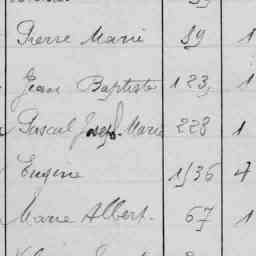 Pierre Marie 89 1
Jean Baptiste 123 1
Pascal Joseph Marie 228 1
Eugène 1536 4
Marie Albert. 67 1